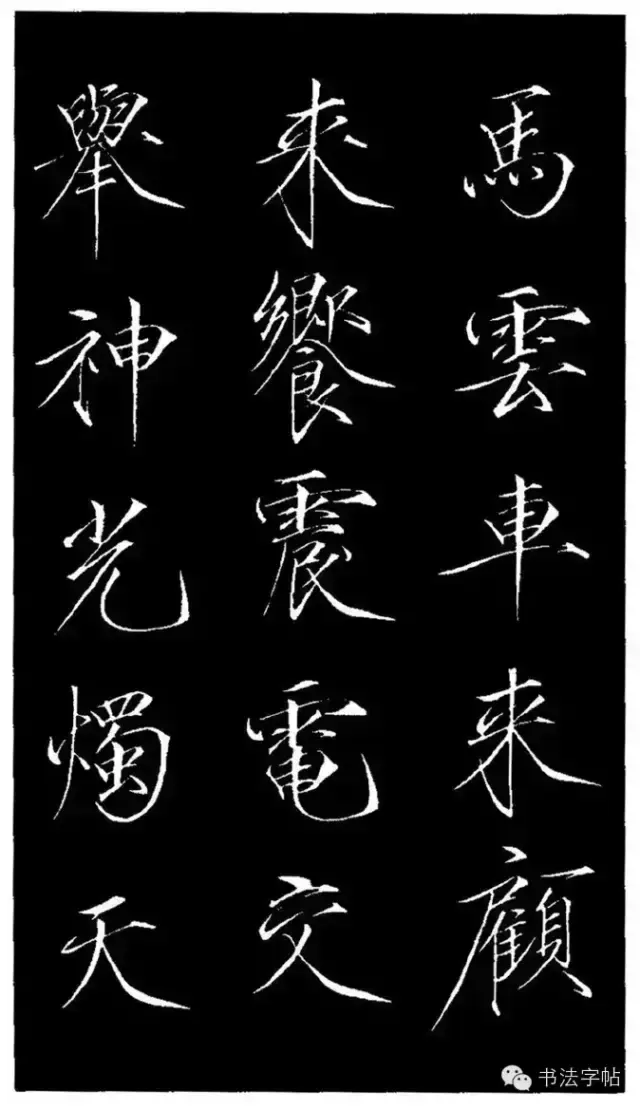 馬雲車来顧
来饗震電交
舉神光燭天
书法字帖